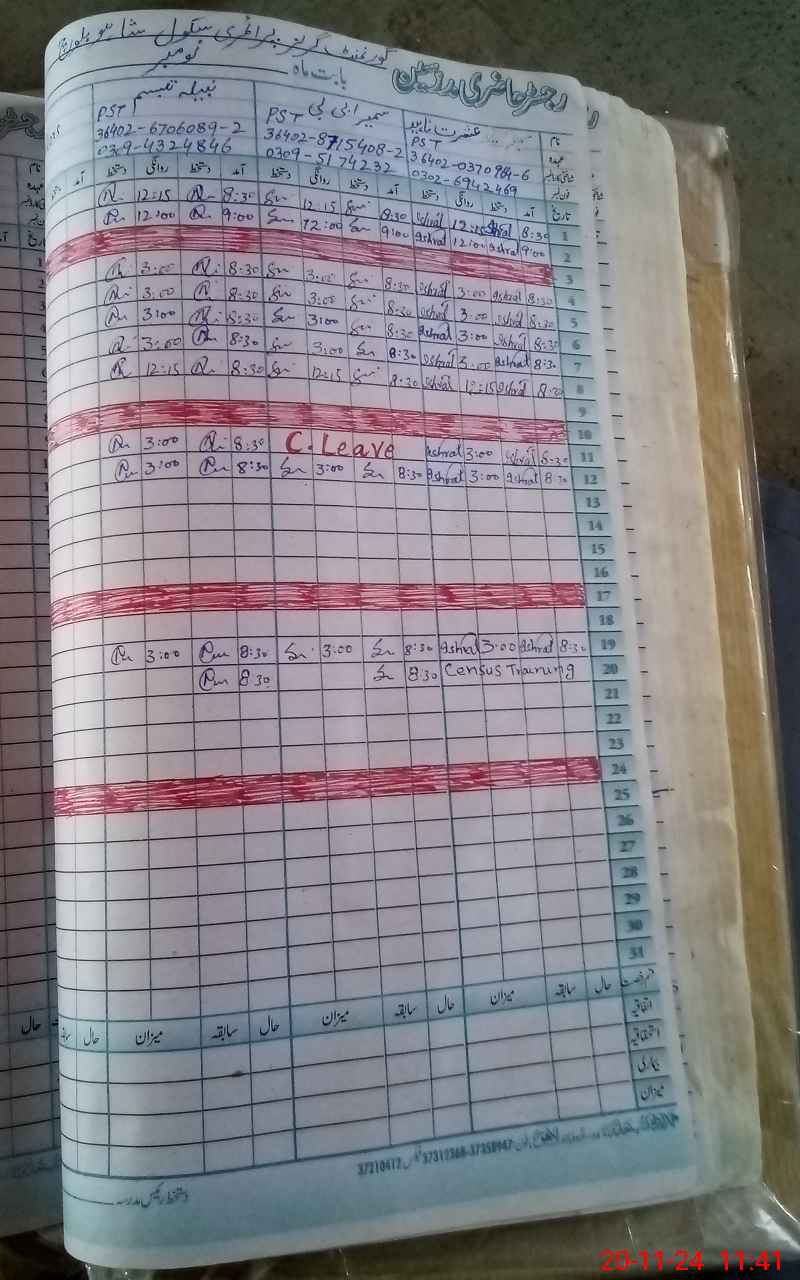 رجسٹر حاضری مدرسین
گورنمنٹ گرلز پرائمری سکول
بابت ماہ نومبر
نام عشرت ناہید سمیرا بی بی نبیلہ تبسم
عہدہ PST PST PST
36402-0370984-6 36402-8715408-2 36402-6706089-2
0302-6942469 0309-5174232 0309-4324846
تاریخ آمد دستخط روانگی دستخط آمد دستخط روانگی دستخط آمد دستخط روانگی دستخط
1 8:30 Ishrat 12:15 Ishrat 8:30 12:15 8:30 12:15
2 9:00 Ishrat 12:00 Ishrat 9:00 12:00 9:00 12:00
3
4 8:30 Ishrat 3:00 Ishrat 8:30 3:00 8:30 3:00
5 8:30 Ishrat 3:00 Ishrat 8:30 3:00 8:30 3:00
6 8:30 Ishrat 3:00 Ishrat 8:30 3:00 8:30 3:00
7 8:30 Ishrat 3:00 Ishrat 8:30 3:00 8:30 3:00
8 8:30 Ishrat 12:15 Ishrat 8:30 12:15 8:30 12:15
9
10
11 8:30 Ishrat 3:00 Ishrat C. Leave 8:30 3:00
12 8:30 Ishrat 3:00 Ishrat 8:30 3:00 8:30 3:00
13
14
15
16
17
18
19 8:30 Ishrat 3:00 Ishrat 8:30 3:00 8:30 3:00
20 Census Training 8:30 8:30
21
22
23
24
25
26
27
28
29
30
31
قسم رخصت حال سابقہ میزان حال سابقہ میزان حال سابقہ میزان حال
اتفاقیہ
استحقاقیہ
بیماری
میزان
37312368-37358947 37210417
دستخط رئیس مدرسہ
حال
20-11-24 11:41